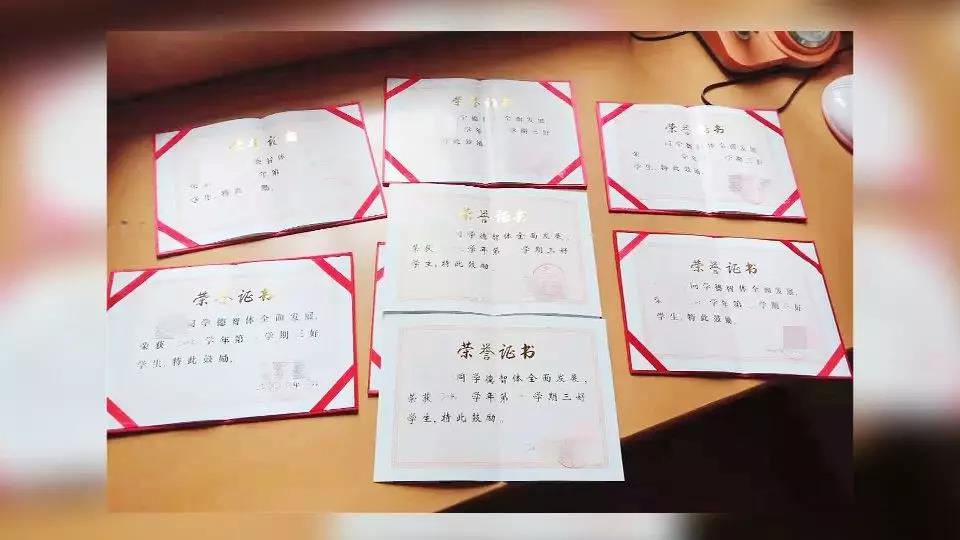 荣誉证书
学生,特此 励。
荣誉证书
全面发展
学期三好
此鼓励。
荣誉证书
同学德智体全面发展,
荣 学期三好
学生,特此鼓励。
荣誉证书
同学德智体全面发展,
荣获 学年第 学期三好
学生,特此鼓励。
荣誉证书
同学德智体全面发展,
荣获 学年第 学期三好
学生,特此鼓励。
荣誉证书
同学德智体全面发展,
学年第 学期三好
学生,特此鼓励。
荣誉证书
同学德智体全面发展,
荣获 学年第一学期三好
学生,特此鼓励。